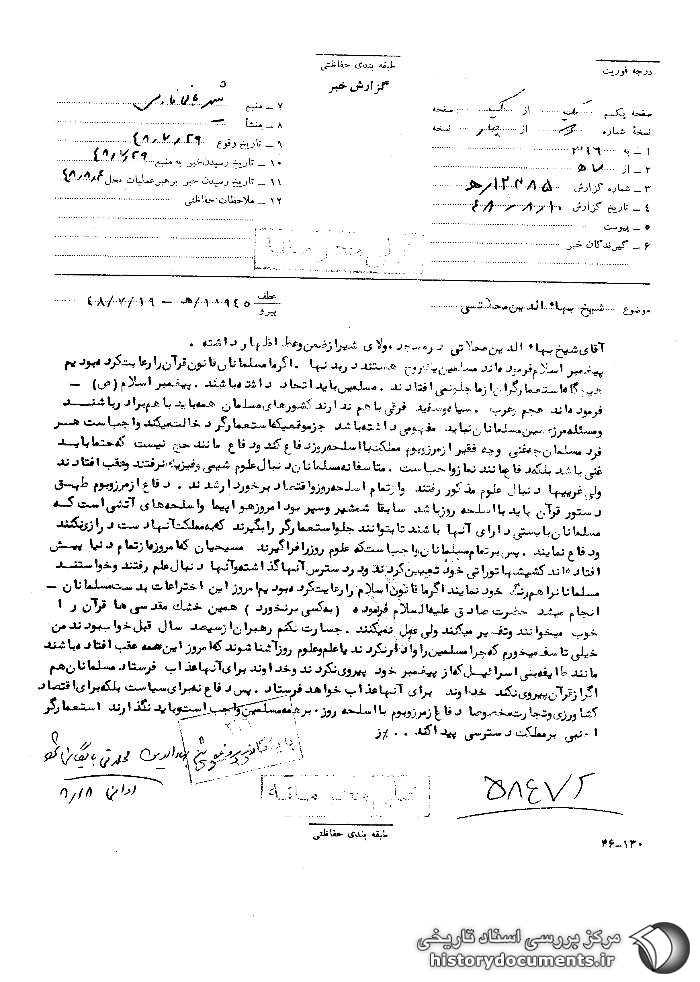 درجه فوریت
طبقه بندی حفاظتی
گزارش خبر
صفحه یکم از صفحه
نسخهٔ شماره از چهار نسخه
۱ ــ به ۳۱۶
۲ ــ از ۷ ه
۳ ــ شماره گزارش ۱۲۴۸۵/ه
۴ ــ تاریخ گزارش ۴۸/۸/۱۰
۵ ــ پیوست
۶ ــ گیرندگان خبر
۷ ــ منبع
۸ ــ منشأ
۹ ــ تاریخ وقوع ۴۸/۷/۲۹
۱۰ ــ تاریخ رسیدن خبر به منبع ۴۸/۷/۲۹
۱۱ ــ تاریخ رسیدن خبر برهبر عملیات محل ۴۸/۸/۴
۱۲ ــ ملاحظات حفاظتی
خیلی محرمانه
موضوع شیخ بهاء الدین محلاتی
عطف پیرو ۱۱۹۴۵/ه – ۴۸/۷/۱۹
آقای شیخ بهاء الدین محلاتی در مسجد مولای شیراز ضمن وعظ اظهار داشته .
پیغمبر اسلام فرموده اند مسلمین یک روح هستند در بدنها . اگر ما مسلمانان قانون قرآن را رعایت کرده بودیم
هیچگاه استعمارگران از ما جلو نمی افتادند . مسلمین باید اتحاد داشته باشند . پیغمبر اسلام (ص) ــ
فرموده اند عجم و عرب . سیاه و سفید فرقی با هم ندارند کشورهای مسلمان همه باید با هم برادر باشند
و مسئله مرز بین مسلمانان نباید مفهومی داشته باشد جز موقعیکه استعمارگر دخالت میکند واجب است هر
فرد مسلمان چه غنی وچه فقیر از مرزوبوم مملکت با اسلحه روز دفاع کند دفاع مانند حج نیست که حتما باید
غنی باشد بلکه دفاع مانند نماز واجب است . متأسفانه مسلمانان دنبال علوم شیمی وفیزیک نرفتند وعقب افتادند
ولی غربیها دنبال علوم مذکور رفتند واز تمام اسلحه روز واقتصاد برخوردار شدند . دفاع از مرزوبوم طبق
دستور قرآن باید با اسلحه روز باشد سابقا شمشیر وسپر بود امروز هواپیما واسلحه های آتشی است که
مسلمانان بایستی دارای آنها باشند تا بتوانند جلو استعمارگر را بگیرند که به مملکت آنها دست درازی نکنند
ودفاع نمایند . پس بر تمام مسلمانان واجب است که علوم روز را فراگیرند مسیحیان که امروز از تمام دنیا پیش
افتاده اند کشیشها توراتی خود تعیین کردند ودر دسترس آنها گذاشته و آنها دنبال علم رفتند وخواستند
مسلمانان را هم رنگ خود نمایند اگر ما قانون اسلام را رعایت کرده بودیم امروز این اختراعات بدست مسلمانان ــ
انجام میشد حضرت صادق علیه السلام فرموده (به کسی برنخورد) همین خشک مقدسی ها قرآن را
خوب میخوانند وتفسیر میکنند ولی عمل نمیکنند . جسارت نکنم رهبران از سیصد سال قبل خواب بودند من
خیلی تأسف میخورم که چرا مسلمین را وادار نکردند با علم وعلوم روز آشنا شوند که امروز این همه عقب افتاده باشند
مانند طایفه بنی اسرائیل که از پیغمبر خود پیروی نکردند وخداوند برای آنها عذاب فرستاد مسلمانان هم
اگر از قرآن پیروی نکنند خداوند برای آنها عذاب خواهد فرستاد . پس دفاع نه برای سیاست بلکه برای اقتصاد
کشاورزی وتجارت مخصوصا دفاع از مرزوبوم با اسلحه روز . بر همه مسلمین واجب است و باید نگذارند استعمارگر
اجنبی بر مملکت دسترسی پیدا کند . . %ز
بهاءالدین محلاتی بایگانی شود
۸/۱۸
خیلی محرمانه
۵۸۴۷۲
طبقه بندی حفاظتی
۴۶-۱۳۰
مرکز بررسی اسناد تاریخی
historydocuments.ir